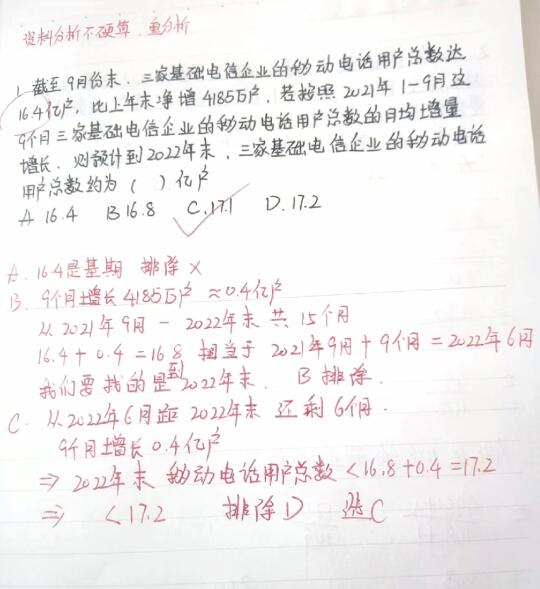 资料分析不硬算 重分析
1. 截至9月份末，三家基础电信企业的移动电话用户总数达
16.4亿户，比上年末净增4185万户，若按照2021年1-9月这
9个月三家基础电信企业的移动电话用户总数的月均增量
增长，则预计到2022年末，三家基础电信企业的移动电话
用户总数约为（ ）亿户
A 16.4 B 16.8 C.17.1 D.17.2
A. 16.4是基期 排除 ×
B. 9个月增长4185万户 ≈0.4亿户
从2021年9月-2022年末 共15个月
16.4+0.4=16.8 相当于 2021年9月+9个月=2022年6月
我们要找的是到2022年末. B排除.
C. 从2022年6月距2022年末还剩6个月.
9个月增长0.4亿户
⇒ 2022年末 移动电话用户总数<16.8+0.4=17.2
⇒ <17.2 排除D 选C